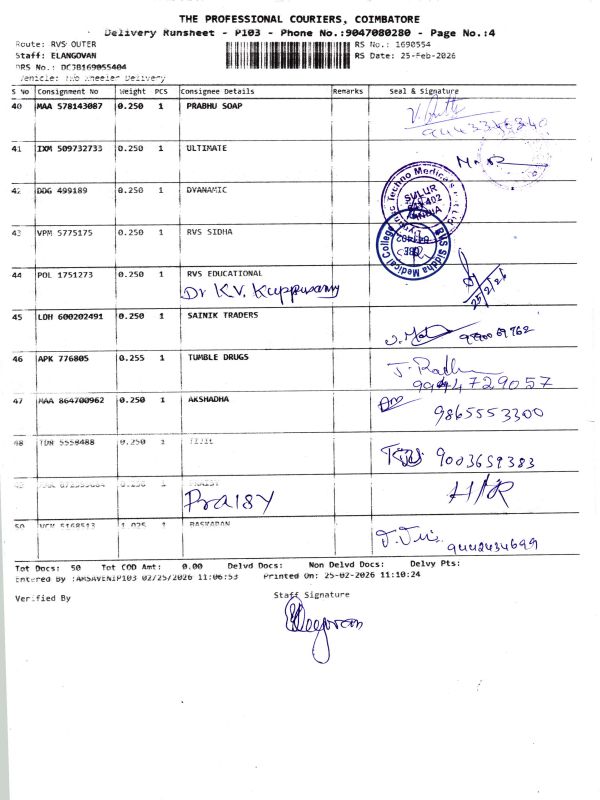 THE PROFESSIONAL COURIERS, COIMBATORE
Delivery Runsheet - P103 - Phone No.:9047080280 - Page No.:4
Route: RVS OUTER RS No.: 1690554
Staff: ELANGOVAN RS Date: 25-Feb-2026
DRS No.: DCJB169055404
Vehicle: Two Wheeler Delivery
S No Consignment No Weight PCS Consignee Details Remarks Seal & Signature
40 MAA 578143087 0.250 1 PRABHU SOAP
41 IXM 509732733 0.250 1 ULTIMATE
42 DDG 499189 0.250 1 DYANAMIC
SULUR
INDIA
43 VPM 5775175 0.250 1 RVS SIDHA
RVS Siddha Medical College
44 POL 1751273 0.250 1 RVS EDUCATIONAL
Dr K.V. Kuppusamy
25/2/26
45 LDH 600202491 0.250 1 SAINIK TRADERS
46 APK 776805 0.255 1 TUMBLE DRUGS
J. Radha
47 MAA 864700962 0.250 1 AKSHADHA
9865553300
48 TDR 5558488 0.250 1
9003659383
49 0.250 1 PRAISY
PRAISY
50 VCK 5168513 1.025 1 BASKARAN
9442434699
Tot Docs: 50 Tot COD Amt: 0.00 Delvd Docs: Non Delvd Docs: Delvy Pts:
Entered By :AKSAVENIP103 02/25/2026 11:06:53 Printed On: 25-02-2026 11:10:24
Verified By Staff Signature